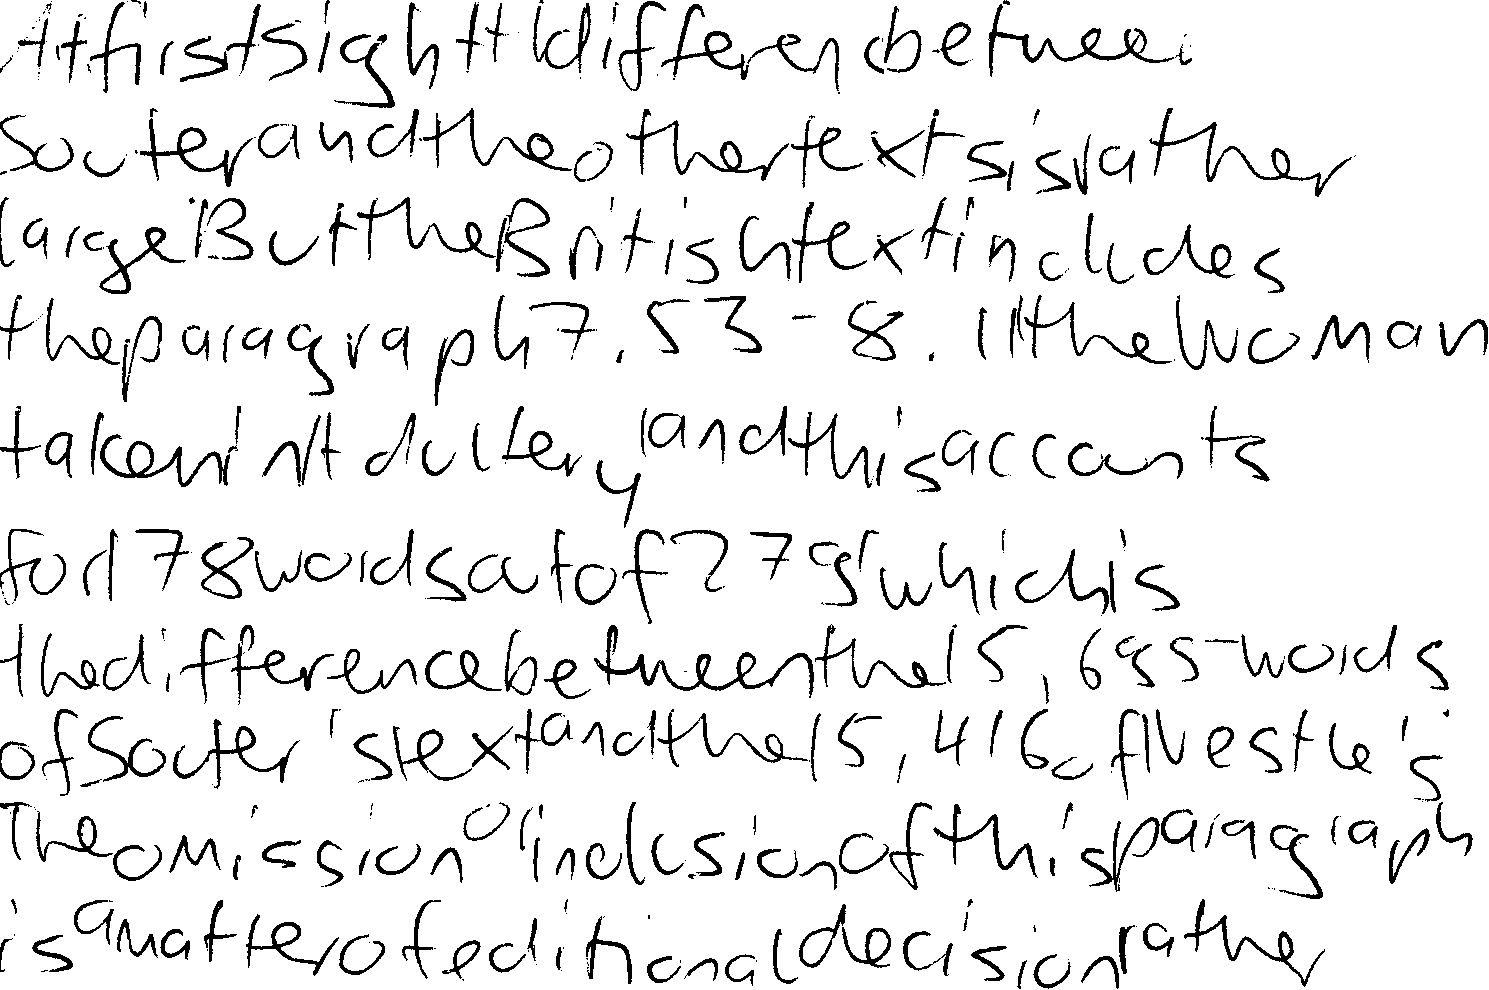 At first sight the difference between
Souter and the other texts is rather
large. But the British text includes
the paragraph 7.53-8.11 the woman
taken in adultery and this accounts
for 178 words out of 279 which is
the difference between the 15,695 words
of Souter's text and the 15,416 of Nestle's.
The omission or inclusion of this paragraph
is a matter of editional decision rather